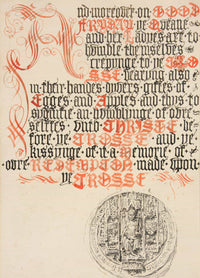 And moreover on GOOD
FRYDAY ye Queane
and her Ladyes are to
humble themselves
creepynge to ye CRO
SSE bearing also
in their handes dyvers giftes of
Egges and Apples and thus to
signifie an humblynge of oure
selfes unto CHRISTE be-
fore ye CROSSE and ye
kissynge of it a Memorie of
oure REDEMPTION made upon
ye CROSSE